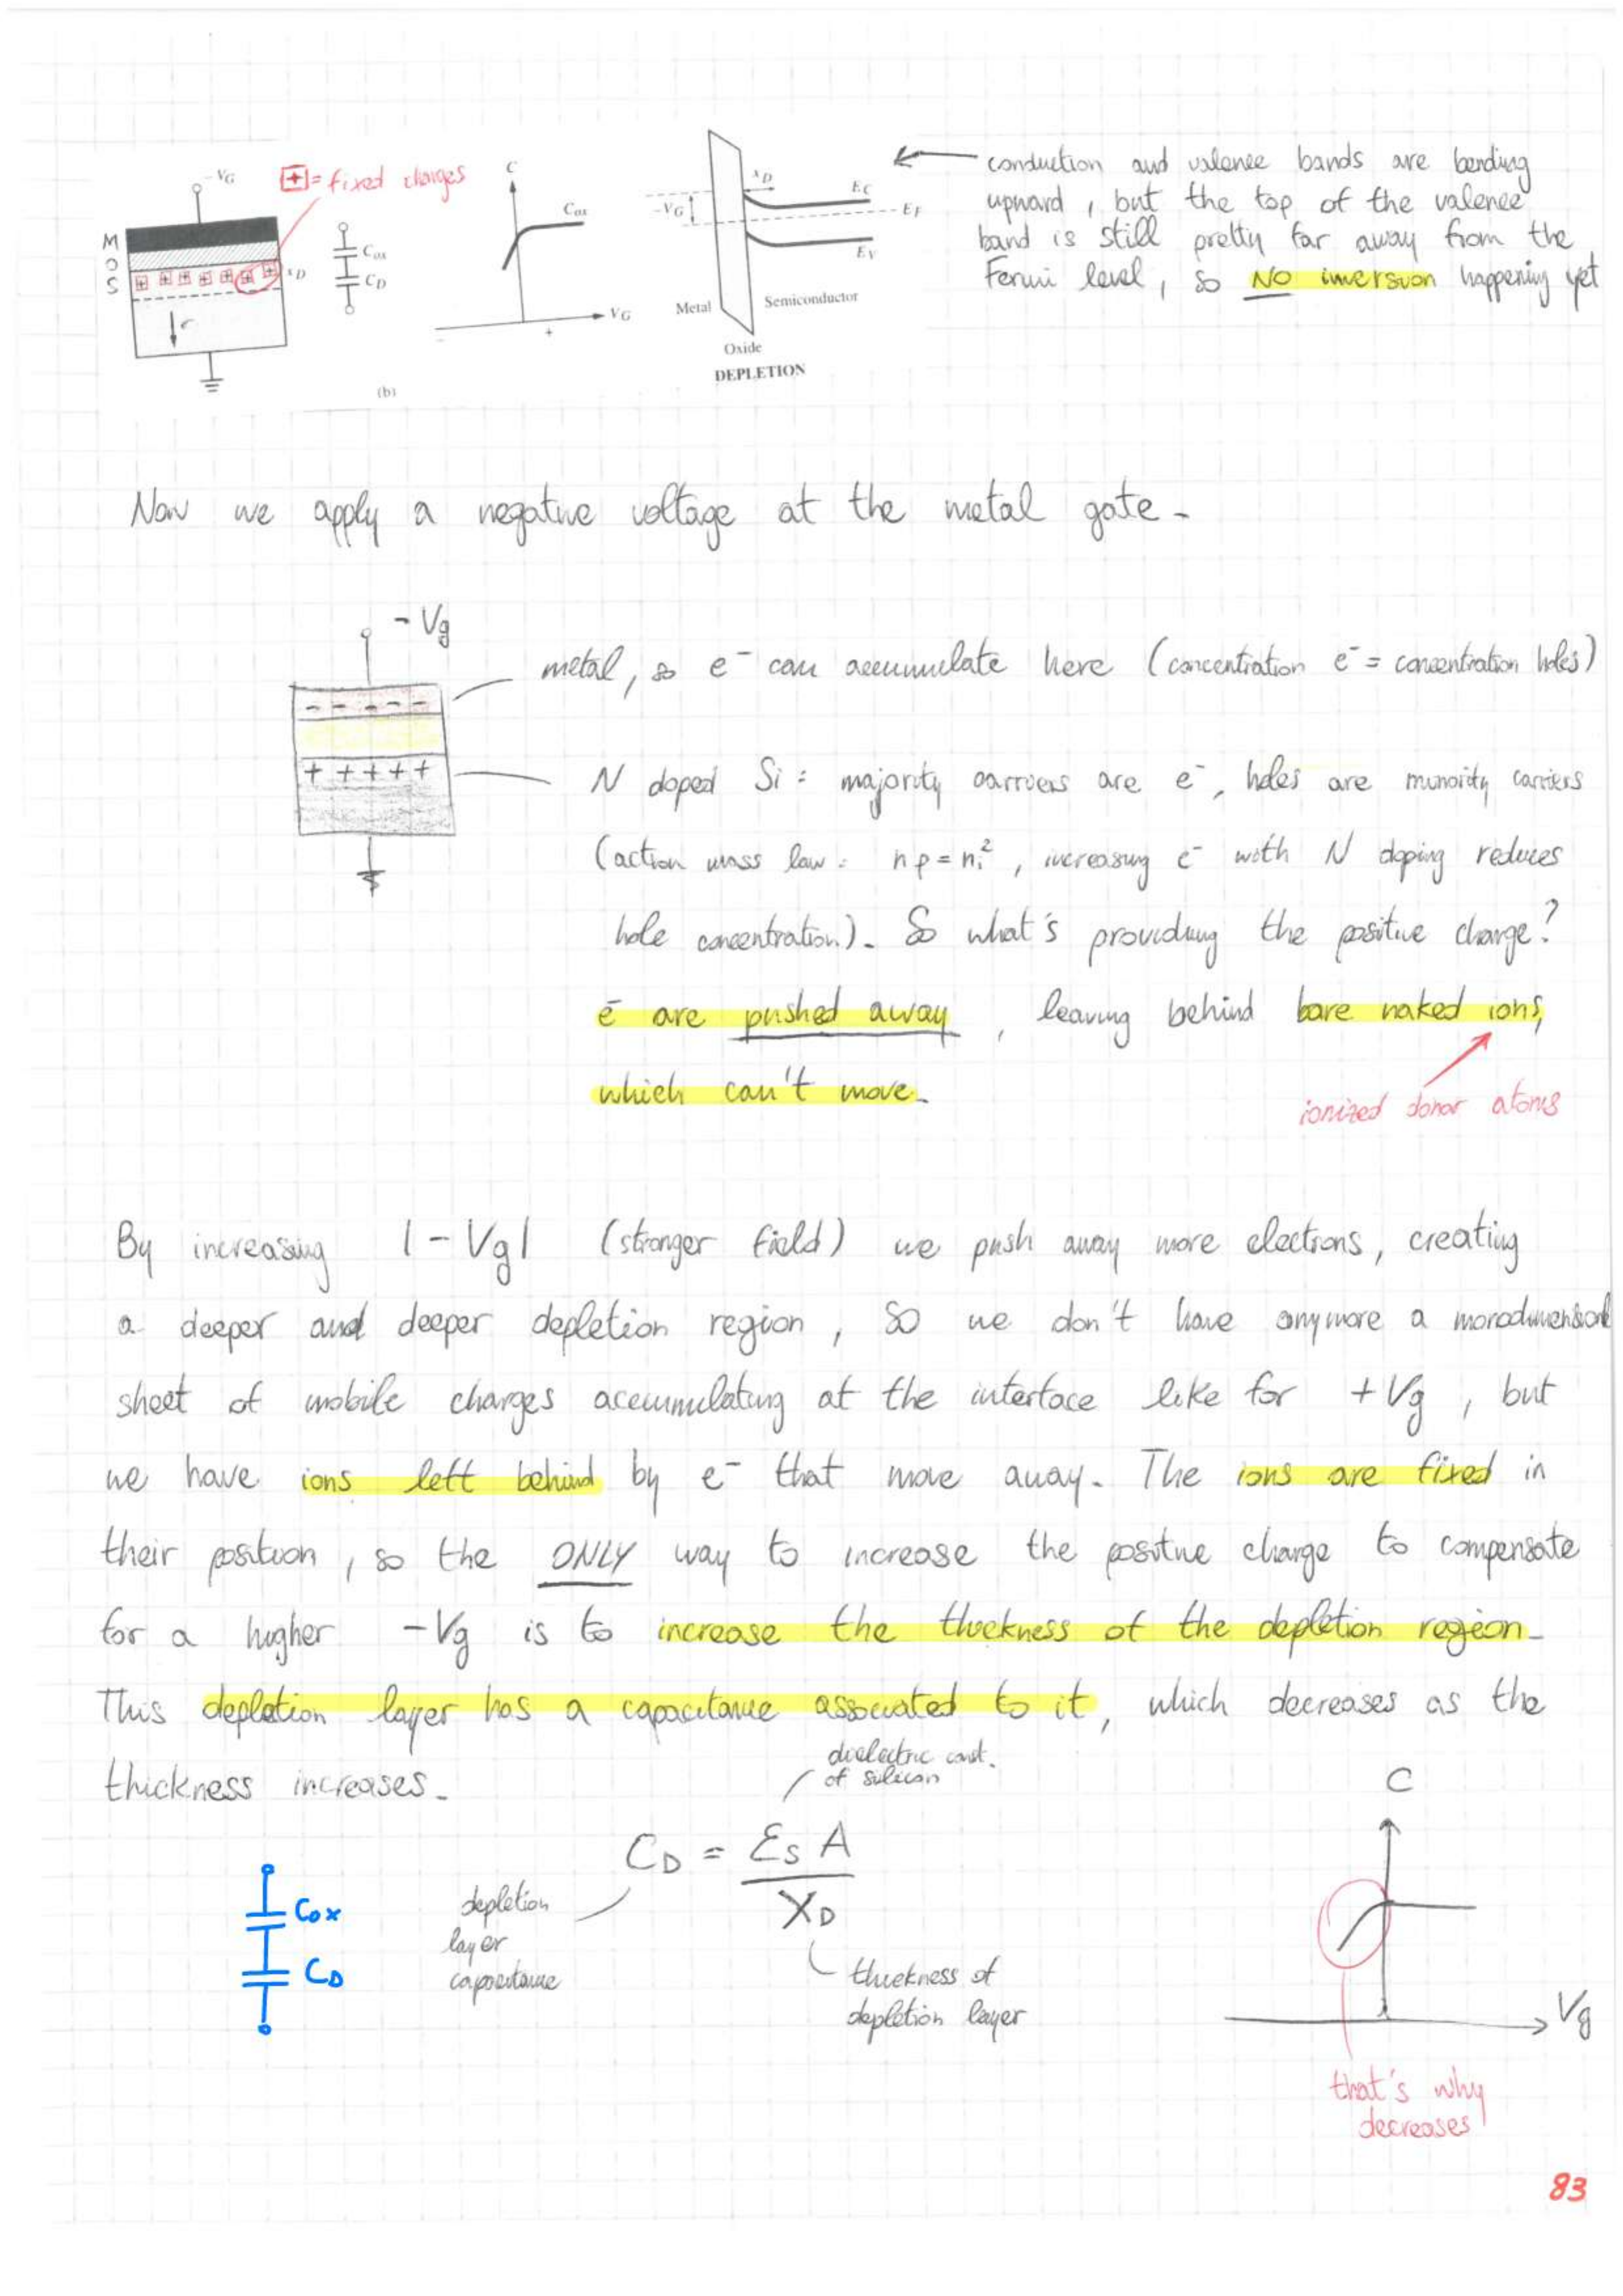 - VG
+ = fixed charges
M
O
S
+ + + + + + +
xD
e-
Cox
CD
(b)
C
Cox
VG
-
+
xD
-VG
EC
EF
EV
Metal
Semiconductor
Oxide
DEPLETION
conduction and valence bands are bending
upward, but the top of the valence
band is still pretty far away from the
Fermi level, so NO inversion happening yet
Now we apply a negative voltage at the metal gate.
- Vg
- - - - -
+ + + + +
metal, so e⁻ can accumulate here (concentration e⁻ = concentration holes)
N doped Si: majority carriers are e⁻, holes are minority carriers
(action mass law: n p = ni², increasing e⁻ with N doping reduces
hole concentration). So what's providing the positive charge?
e⁻ are pushed away, leaving behind bare naked ions,
which can't move.
ionized donor atoms
By increasing |-Vg| (stronger field) we push away more electrons, creating
a deeper and deeper depletion region, so we don't have anymore a monodimensional
sheet of mobile charges accumulating at the interface like for +Vg, but
we have ions left behind by e⁻ that move away. The ions are fixed in
their position, so the ONLY way to increase the positive charge to compensate
for a higher -Vg is to increase the thickness of the depletion region.
This depletion layer has a capacitance associated to it, which decreases as the
thickness increases.
dielectric const.
of silicon
CD = εS A / XD
depletion
layer
capacitance
thickness of
depletion layer
Cox
CD
C
Vg
that's why
decreases
83